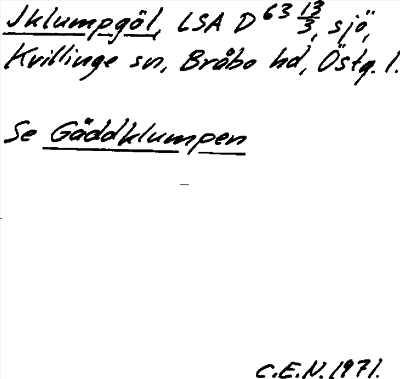 Jklumpgöl, LSA D 63 13/3, sjö,
Kvillinge sn, Bråbo hd, Östg. l.
Se Gäddklumpen
C.E.N. 1971.